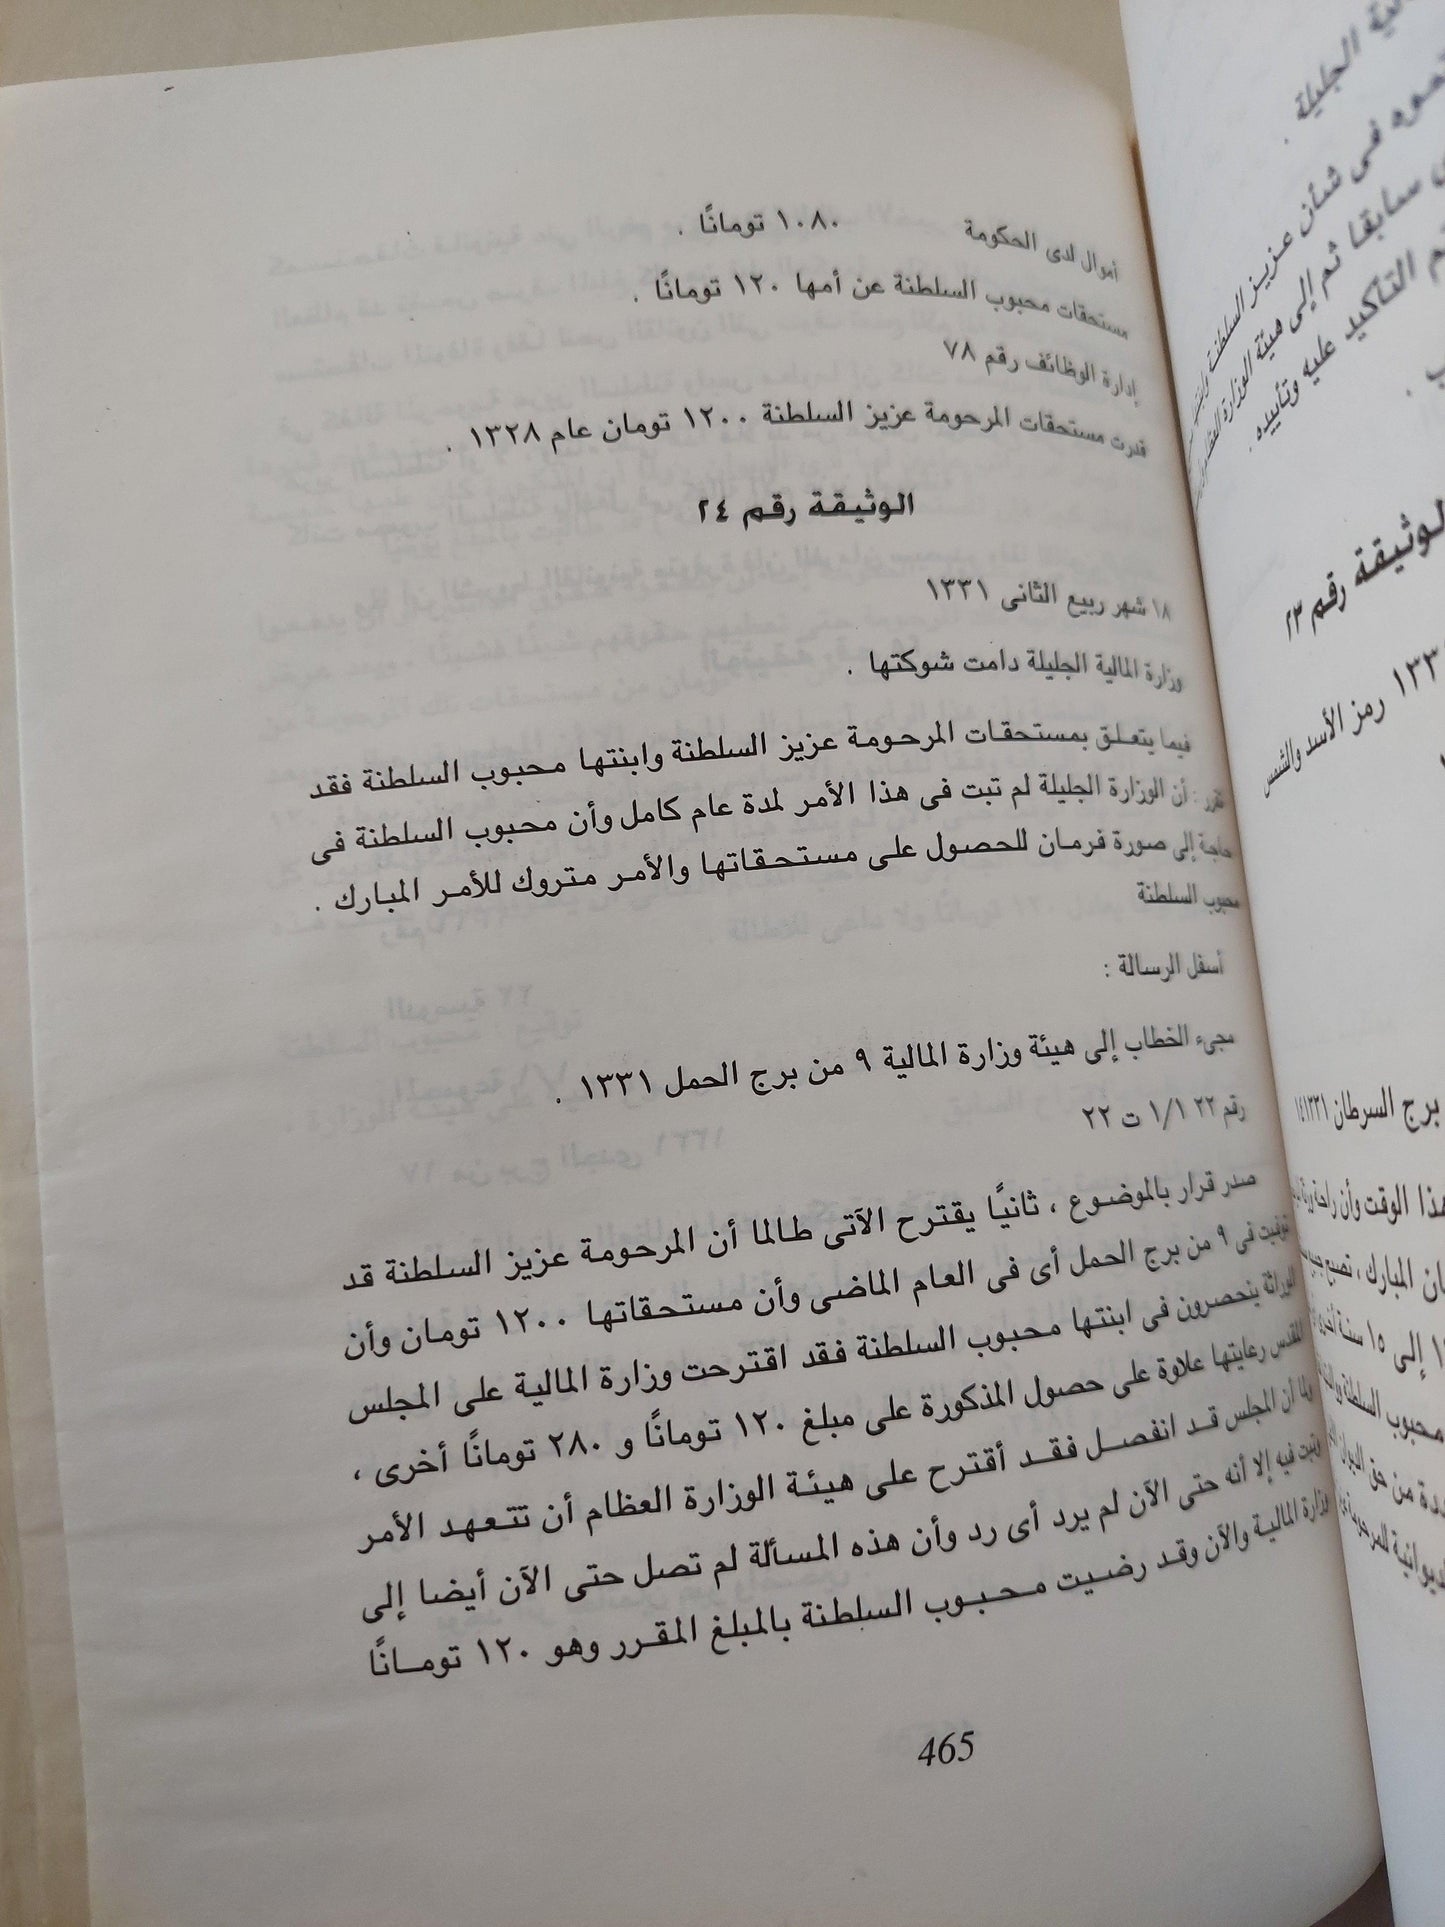 أموال لدى الحكومة ١٠٨٠ تومانًا .
مستحقات محبوب السلطنة عن أمها ١٢٠ تومانًا .
إدارة الوظائف رقم ٧٨
قدرت مستحقات المرحومة عزيز السلطنة ١٢٠٠ تومان عام ١٣٢٨ .
الوثيقة رقم ٢٤
١٨ شهر ربيع الثانى ١٣٣١
وزارة المالية الجليلة دامت شوكتها .
فيما يتعلق بمستحقات المرحومة عزيز السلطنة وابنتها محبوب السلطنة فقد
تقرر : أن الوزارة الجليلة لم تبت فى هذا الأمر لمدة عام كامل وأن محبوب السلطنة فى
حاجة إلى صورة فرمان للحصول على مستحقاتها والأمر متروك للأمر المبارك .
محبوب السلطنة
أسفل الرسالة :
مجىء الخطاب إلى هيئة وزارة المالية ٩ من برج الحمل ١٣٣١ .
رقم ٢٢ ١/١ ت ٢٢
صدر قرار بالموضوع ، ثانيًا يقترح الآتى طالما أن المرحومة عزيز السلطنة قد
توفيت فى ٩ من برج الحمل أى فى العام الماضى وأن مستحقاتها ١٢٠٠ تومان وأن
الوراثة ينحصرون فى ابنتها محبوب السلطنة فقد اقترحت وزارة المالية على المجلس
المقدس رعايتها علاوة على حصول المذكورة على مبلغ ١٢٠ تومانًا و ٢٨٠ تومانًا أخرى ،
ولما أن المجلس قد انفصل فقد أقترح على هيئة الوزارة العظام أن تتعهد الأمر
وتبت فيه إلا أنه حتى الآن لم يرد أى رد وأن هذه المسألة لم تصل حتى الآن أيضا إلى
وزارة المالية والآن وقد رضيت محبوب السلطنة بالمبلغ المقرر وهو ١٢٠ تومانًا
465
الجليلة .
فى شأن عزيز السلطنة
سابقا ثم إلى هيئة الوزارة
التأكيد عليه وتأييده .
الوثيقة رقم ٢٣
رمز الأسد والشمس
برج السرطان ١٣٣١
هذا الوقت وأن
المبارك ،
إلى ١٥ سنة
محبوب السلطنة
من حق